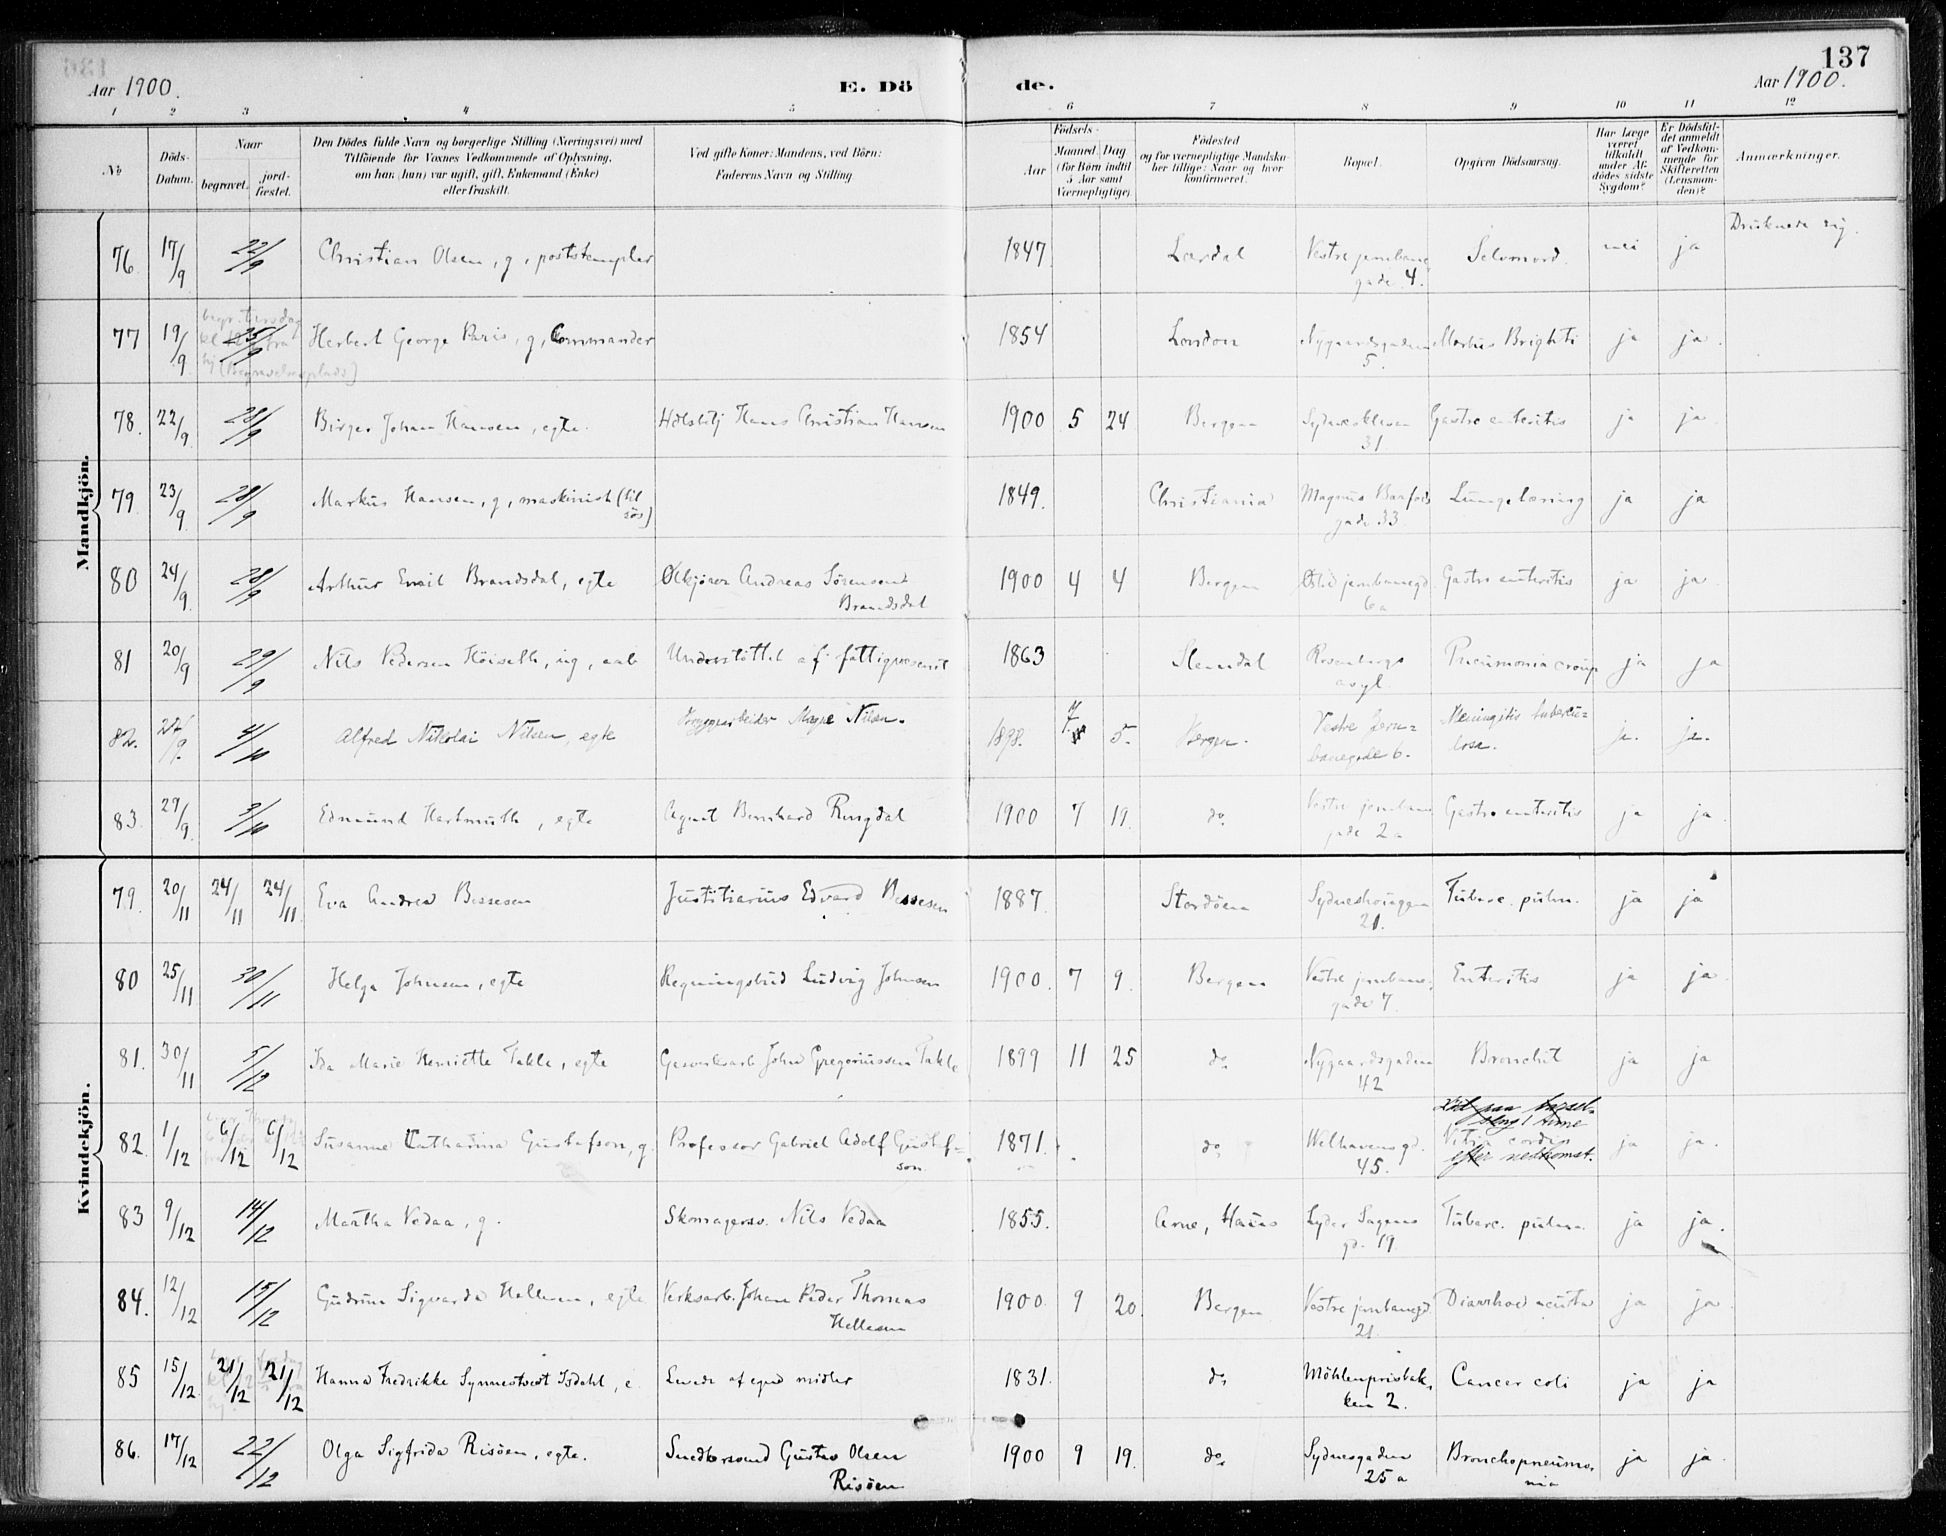 137
Aar 1900.
E. Dö de.
Aar 1900.
1 2 3 4 5 6 7 8 9 10 11 12
No
Döds-Datum.
Naar
begravet.
jord-fæstet.
Den Dödes fulde Navn og borgerlige Stilling (Næringsvei) med
Tilföiende for Voxnes Vedkommende af Oplysning,
om han (hun) var ugift, gift, Enkemand (Enke)
eller fraskilt.
Ved gifte Koner: Mandens, ved Börn:
Faderens Navn og Stilling
Födsels-
Aar
Maaned
Dag
(for Börn indtil
5 Aar samt
Værnepligtige).
Födested
og for værnepligtige Mandska-
ber tillige: Naar og hvor
konfirmeret.
Bopæl.
Opgiven Dödsaarsag.
Har Læge
været
tilkaldt
under Af-
dödes sidste
Sygdom?
Er Dödsfal-
det anmeldt
af Vedkom-
mende for
Skifteretten
(Lensman-
den)?
Anmærkninger.
Mandkjön.
76. 17/9 22/9 Christian Olsen, g, poststempler 1847 Lærdal Vestre jernbane gade 4. Selvmord. nei ja Druknede sig.
77 19/9 25/9 Herbert George Paris, g, Commander 1854 London Nygaardsgaden 5. Morbus Brighti ja ja.
78. 22/9 28/9 Birger Johan Hansen, egte. Hdlsbtj Hans Christian Hansen 1900 5 24 Bergen Sydneskleven 31. Gastro enteritis ja ja.
79. 23/9 28/9 Markus Hansen, g, maskinist (til sös) 1849. Christiania Magnus Barfods gade 33 Lungetæring ja ja
80 24/9 28/9 Arthur Emil Brandsdal, egte Ølkjører Andreas Sörensen Brandsdal 1900 4 4 Bergen Østre jernbanegd 6a Gastro enteritis ja ja.
81 20/9 29/9 Nils Pedersen Höiseth, ug, arb Understöttet af fattigvæsenet 1863 Rosenbergs asyl. Pneumonia croup ja ja
82. 4/10 Alfred Nikolai Nilsen, egte Bryggearbeider Magne Nilsen. 1898. 7 5. Bergen. Vestre Jern=banegade 6. Meningitis tubercu=losa. ja. ja.
83. 29/9 3/10 Edmund Hartmuth, egte Agent Bernhard Ringdal 1900 7 19. do. Vestre jernbane gade 2a Gastro enteritis ja ja.
Kvindekjön.
79. 20/11 24/11 24/11. Eva Andrea Bessesen Justitiarius Edvard Bessesen 1887. Stordöen Sydneshaugen 21. Tuberc. pulm. ja ja
80 25/11 30/11 Helga Johnsen, egte Regningsbud Ludvig Johnsen 1900. 7 9. Bergen Vestre jernbane. gade 7. Enteritis ja ja.
81. 30/11 5/12 Ida Marie Henriette Takle, egte Gasverksarb John Gregoriussen Takle 1899 11 25 do Nygaardsgaden 42 Bronchit ja ja
82. 1/12 6/12 6/12 Susanne Catharina Gustafson, g. Professor Gabriel Adolf Gustaf=son. 1871. do. Welhavens gd. 45. Vitia cordis efter nedkomst. ja ja.
83 9/12 14/12 Martha Vedaa, g. Skomagersv. Nils Vedaa 1855. Arne, Haus Lyder Sagens gd. 19. Tuberc. pulm. ja ja.
84. 12/12 15/12 Gudrun Sigvarda Hellesen, egte Verksarb. Johan Peder Thomas Hellesen 1900. 9 20. Bergen Vestre jernbanegd. 21. Diarrhoe acuta ja ja
85 15/12 21/12 21/12 Hanna Fredrikke Synnestvedt Isdahl, e. Levede af egne midler 1831. do Möhlenprisbakken 2. Cancer coli ja ja
86. 17/12 22/12 Olga Sigfrida Risöen, egte. Snedkersvend Gustav Olsen Risöen 1900 9 19. do. Sydnesgaden 25a Bronchopneumonia ja ja.